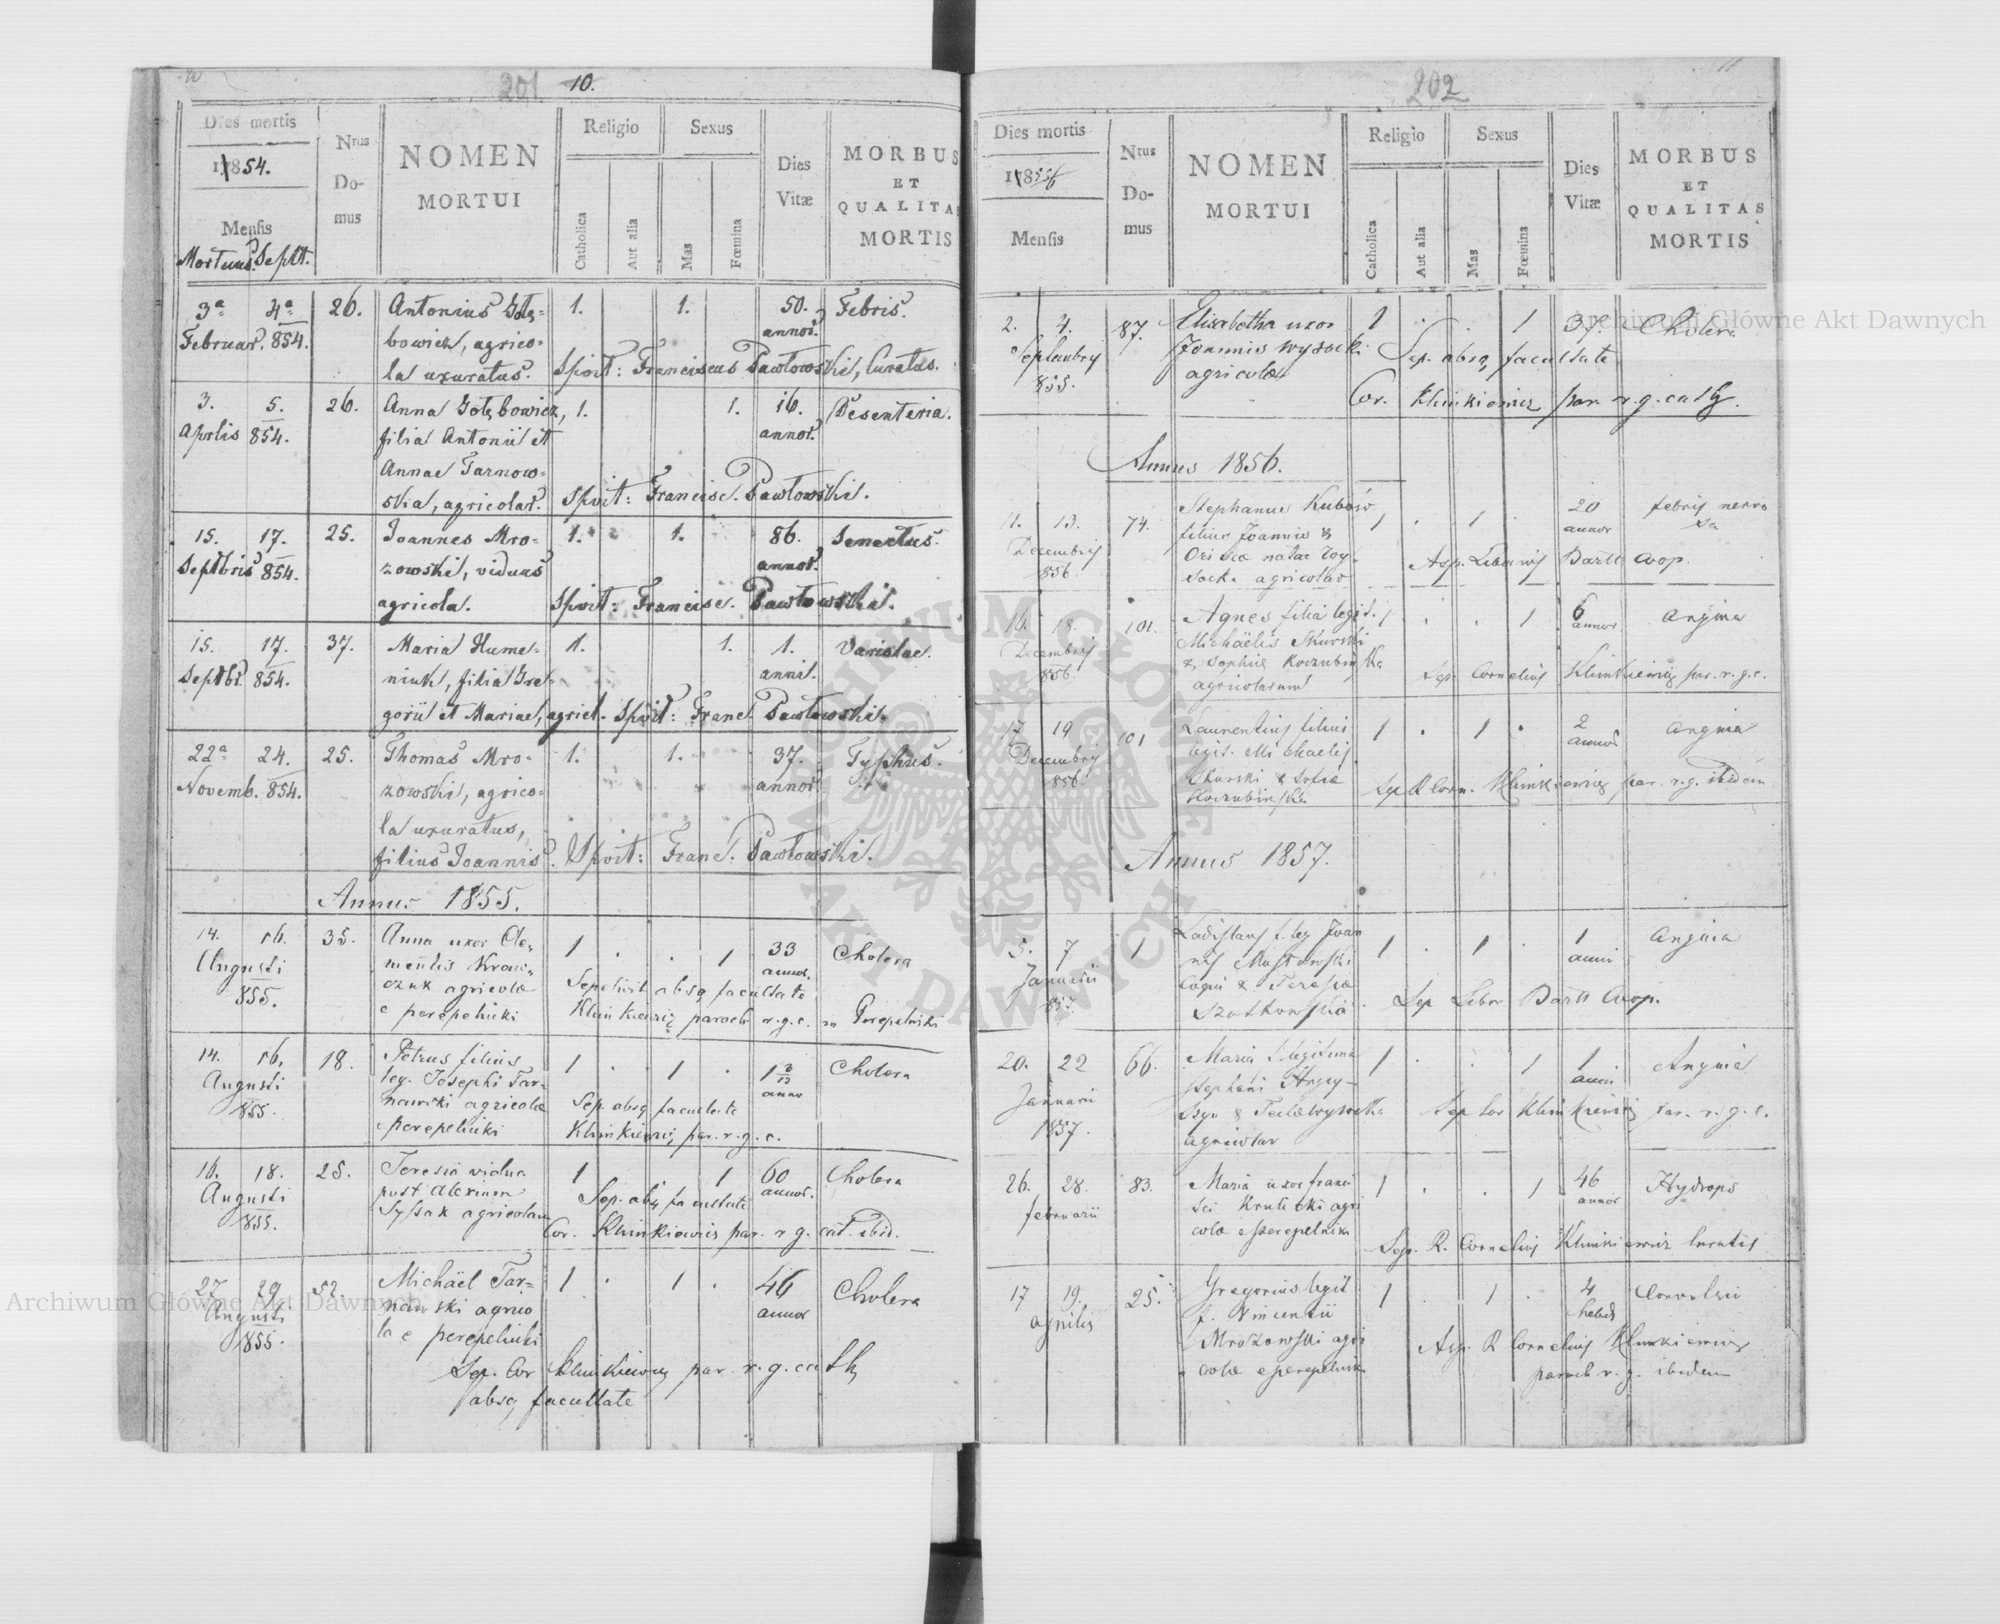 201 10.
Dies mortis
1854.
Mensis
Mortuus Sept.
Nrus
Do-
mus
NOMEN
MORTUI
Religio
Catholica
Aut alia
Sexus
Mas
Fœmina
Dies
Vitæ
MORBUS
ET
QUALITAS
MORTIS
3a 4a 26. Antonius Gołę= 1. 1. 50. Febris.
Februar. 854. bowicz, agrico= annor.
la uxuratus. Spvit: Franciscus Pawłowski, Curatus.
3. 5. 26. Anna Gołębowicz, 1. 1. 16. Desenteria.
Aprlis 854. filia Antonii et annor.
Annae Tarnow=
skia, agricolar. Spvit: Francisc. Pawłowski.
15. 17. 25. Joannes Mro= 1. 1. 86. Senectus.
Septbris 854. zowski, viduus annor.
agricola. Spvit: Francisc. Pawłowski.
15. 17. 37. Maria Hume= 1. 1. 1. Variolae.
Septbr. 854. niuk, filia Gre= anni.
gorii et Mariae, agricl. Spvit: Franc. Pawłowski.
22a 24. 25. Thomas Mro= 1. 1. 37. Typhus.
Novemb. 854. zowski, agrico= annor.
la uxuratus,
filius Joannis. Spvit: Franc. Pawłowski.
Annus 1855.
14. 16. 35. Anna uxor Cle= 1 . . 1 33 Cholera
Augusti mentis Krow= annor.
855. czuk agricolæ Sepelivit absq facultate
e perepelniki Klimkiewicz paroch r.g.c. in Perepelniki
14. 16. 18. Petrus filius 1 . 1 . 1 2/12 Cholera
Augusti leg. Josephi Tar= anno
855. nawski agricolæ Sep. absq facultate
e perepelniki Klimkiewicz par. r.g.c.
16. 18. 25. Teresia vidua 1 1 60 Cholera
Augusti post Alexium Sep. absq facultate annor.
855. Sysak agricolam Cor. Klimkiewicz par. r g. cat. ibid.
27 29 52. Michäel Tar= 1 . 1 . 46 Cholera
Augusti nawski agrico annor
855. la e perepelniki
Sep. Cor Klimkiewicz par. r.g. cath
absq facultate
202
Dies mortis
1855/6
Mensis
Nrus
Do-
mus
NOMEN
MORTUI
Religio
Catholica
Aut alia
Sexus
Mas
Fœmina
Dies
Vitæ
MORBUS
ET
QUALITAS
MORTIS
2. 4. 87. Elisabetha uxor 1 . . 1 37. Cholera
Septembris Joannis Wysocki Sep. absq facultate
855. agricolæ
Cor. Klimkiewicz par. r.g. cath.
Annus 1856.
11. 13. 74. Stephanus Kubów 1 . 1 . 20 febris nervo
Decembris filius Joannis & annor sa
856. natae Wy=
socka agricolar Asp. Libor Bartl Coop.
16. 18. 101. Agnes filia legit. 1 . . 1 6 Angina
Decembris Michäelis Skurski annor
856. & Sophiæ Korzubinska Sep. Cornelius Klimkiewicz par. r.g.c.
agricolarum
17 19 101 Laurentius filius 1 . 1 . 2 Angina
Decembris legit. Michaelis annor
856. Skurski & Sofiæ Sep R Corn. Klimkiewicz par. r.g. ibidem
Korzubinska
Annus 1857.
5. 7 1 Ladislaus f. leg Joan 1 . 1 . 1 Angina
Januarii nis anni
857. Coqui & Teresiæ
Szatkowska Sep Libor Bartl Coop.
20. 22 66. Maria f. legitima 1 . . 1 1 Angina
Januarii Stephani anni
1857. & Teclæ Wysocka Sep Cor Klimkiewicz par. r.g.c.
agricolar
26. 28. 83. Maria uxor franci 1 . . 1 46 Hydrops
februarii sci Krulicki agri annor
colæ e perepelniki
Sep. R. Cornelius Klimkiewicz Curatus
17 19. 25. Gregorius legit 1 . 1 . 4 Convulsii
Aprilis f. Vincentii hebd
Mrozowski agri Asp. R Cornelius Klimkiewicz
colæ e perepelnik paroch r.g. ibidem
Archiwum Główne Akt Dawnych
ARCHIWUM GŁÓWNE AKT DAWNYCH
Archiwum Główne Akt Dawnych